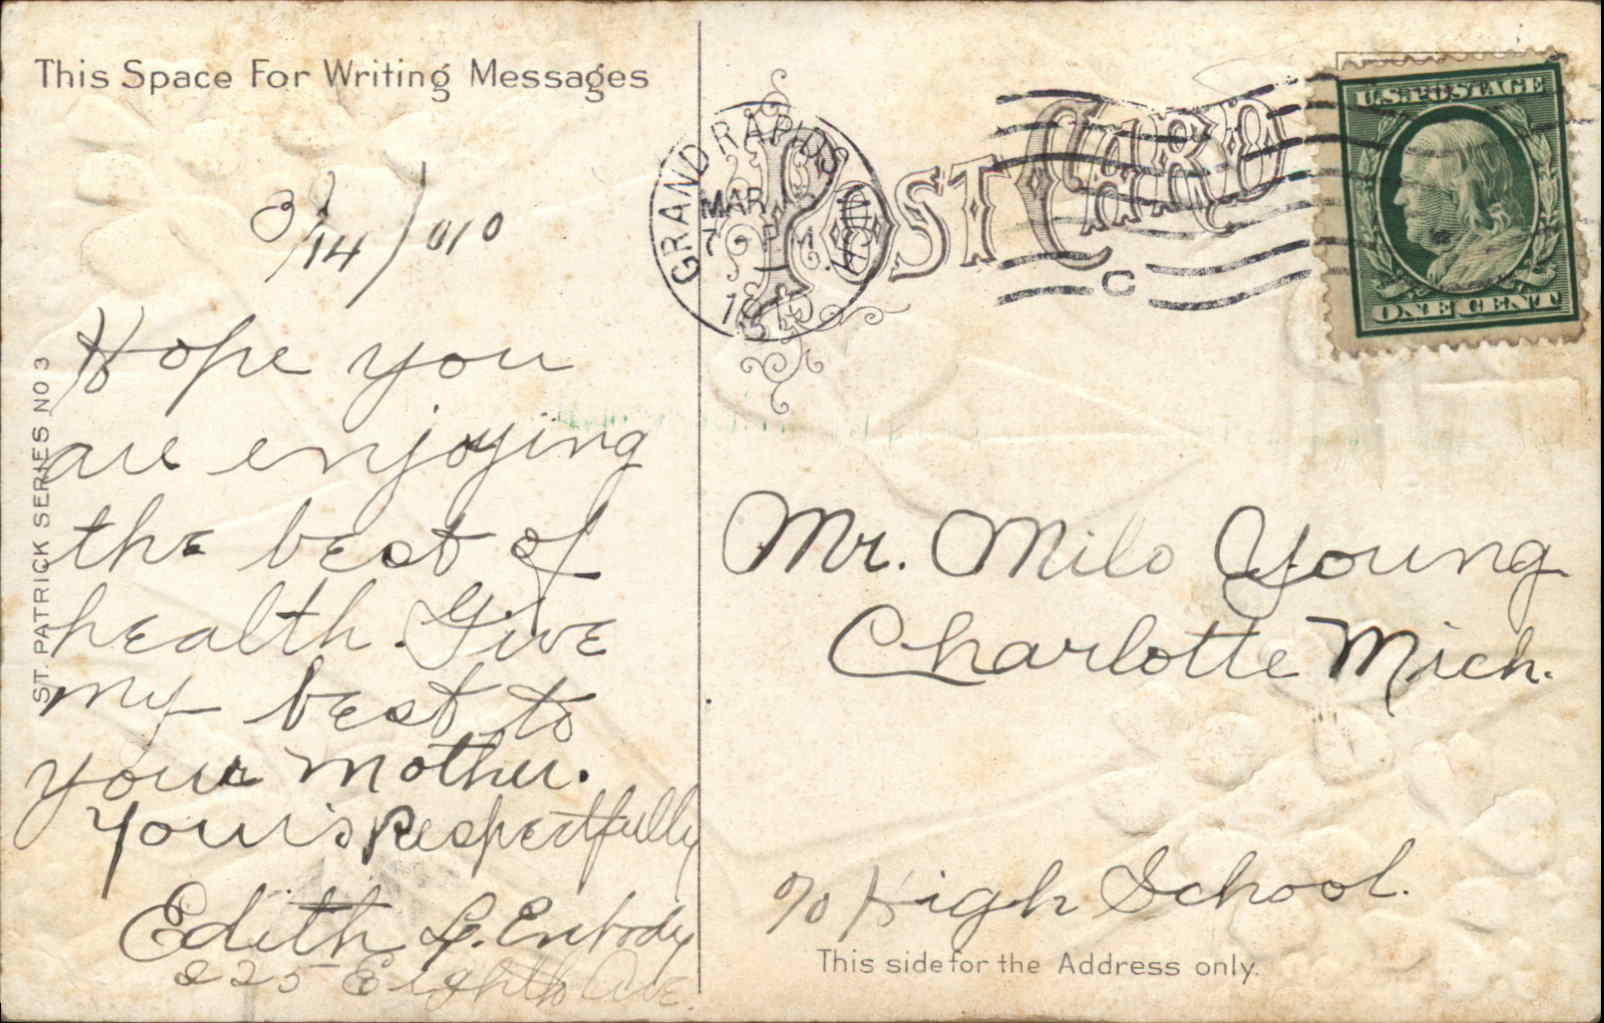 This Space For Writing Messages
3/14/010
Hope you
are enjoying
the best of
health. Give
my best to
your mother.
Your's Respectfully
Edith L. Enbody
225 Eighth Ave.
ST. PATRICK SERIES NO 3
POST CARD
GRAND RAPIDS
MAR
7 PM
1910
MICH.
C
U.S. POSTAGE
ONE CENT
Mr. Milo Young
Charlotte Mich.
c/o High School.
This side for the Address only.